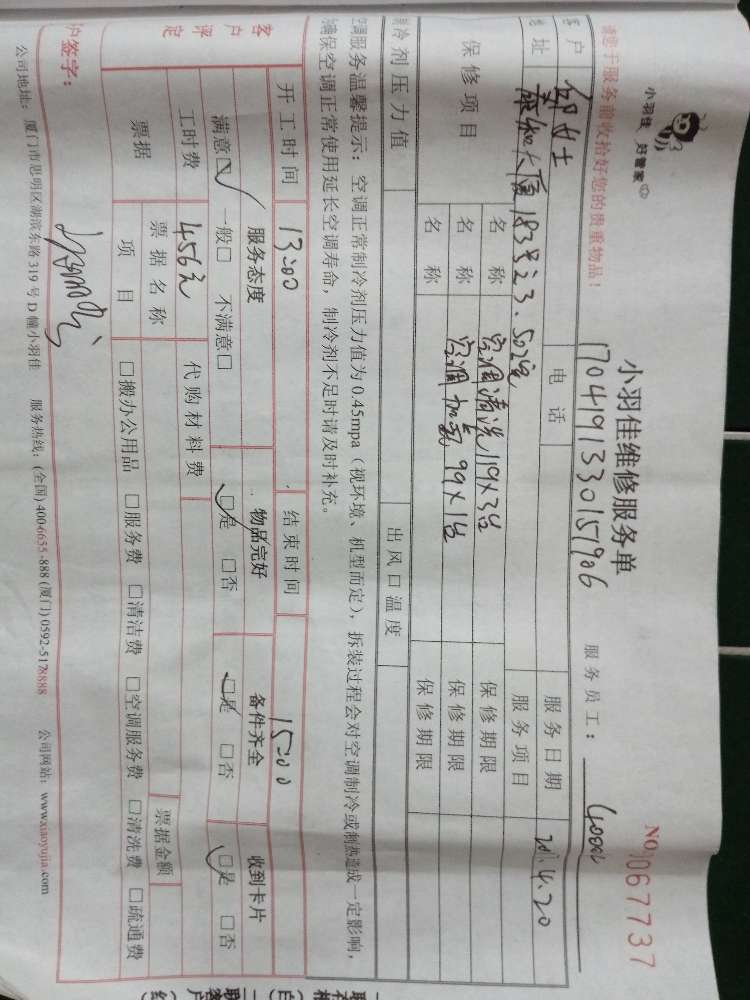 小羽佳 好管家
小羽佳维修服务单
NO. 1067737
请您于服务前收拾好您的贵重物品!
1704191330157906
服务员工:
客户 邹女士 电话 服务日期 2017.4.20
地址 183号23.502室 服务项目
保修项目 名称 空调清洗 119×3台 保修期限
名称 空调加氟 99×1台 保修期限
名称 保修期限
制冷剂压力值 出风口温度
空调服务温馨提示:空调正常制冷剂压力值为0.45mpa(视环境、机型而定),拆装过程会对空调制冷或制热造成一定影响,
确保空调正常使用延长空调寿命,制冷剂不足时请及时补充。
开工时间 13:00 结束时间 15:00
客户评定 服务态度 物品完好 备件齐全 收到卡片
满意☑ 一般□ 不满意□ ☑是 □否 ☑是 □否 ☑是 □否
工时费 456元 代购材料费
票据 票据名称 票据金额
项目 □搬办公用品 □服务费 □清洁费 □空调服务费 □清洗费 □疏通费
户签字:
公司地址:厦门市思明区湖滨东路319号D幢小羽佳 服务热线:(全国)400-6655-888(厦门)0592-5178888 公司网站:www.xiaoyujia.com